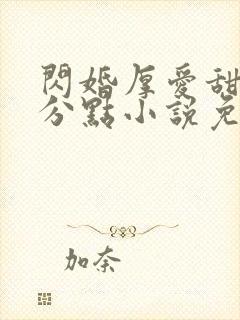 閃婚厚愛甜
分點小說免
加奈